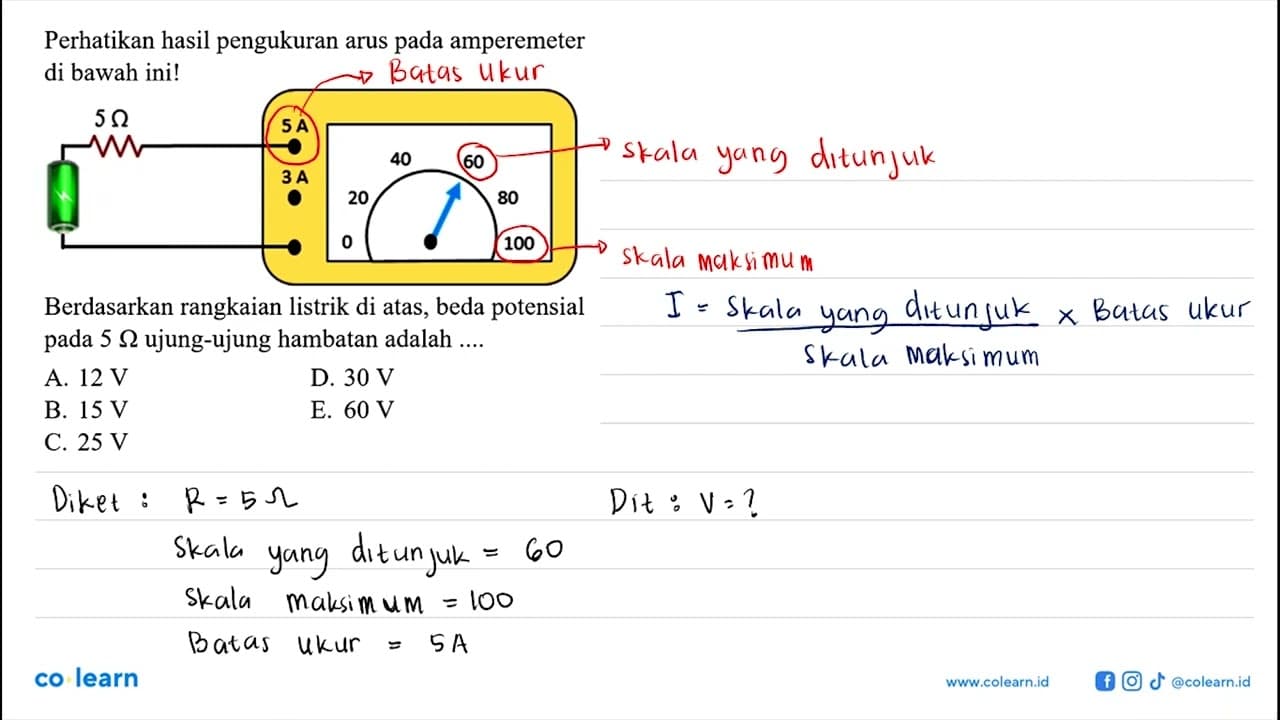 Perhatikan hasil pengukuran arus pada amperemeter
di bawah ini!
Batas ukur
5 Ω
5 A
3 A
0
20
40
60
80
100
skala yang ditunjuk
skala maksimum
Berdasarkan rangkaian listrik di atas, beda potensial
pada 5 Ω ujung-ujung hambatan adalah ....
A. 12 V
B. 15 V
C. 25 V
D. 30 V
E. 60 V
I = Skala yang ditunjuk x Batas ukur
Skala maksimum
Diket : R = 5 Ω
Skala yang ditunjuk = 60
Skala maksimum = 100
Batas ukur = 5A
Dit : V = ?
co learn
www.colearn.id
@colearn.id